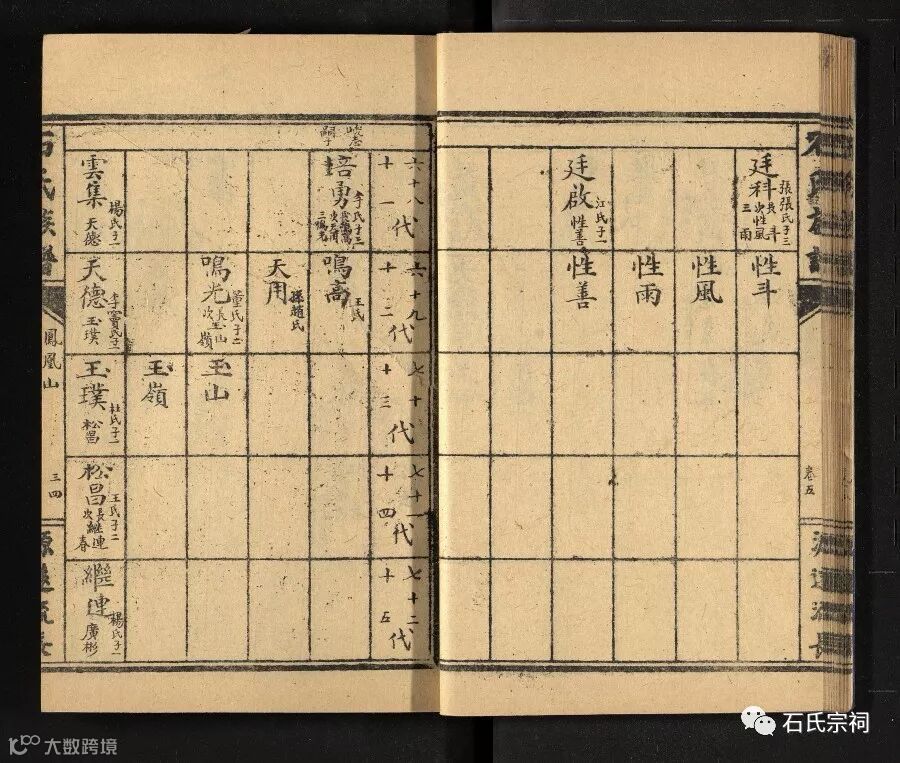 石氏族譜
卷五
源遠流長
廷科
張張氏子三
長斗
次性風
三雨
性斗
性風
性雨
廷啟
江氏子一
性善
性善
六十八代
十一
六十九代
十二
七十代
十三
七十一代
十四
七十二代
十五
培勇
李氏子三
鳴高
王氏
天用
孫趙氏
鳴光
董氏子二
長玉山
次嶺
玉山
玉嶺
雲集
楊氏子一
天德
天德
玉璞
玉璞
杜氏子一
松昌
松昌
王氏子二
長繼連
次春
繼連
楊氏子一
廣彬
石氏族譜
鳳凰山
三四
源遠流長
石氏宗祠
大数跨境